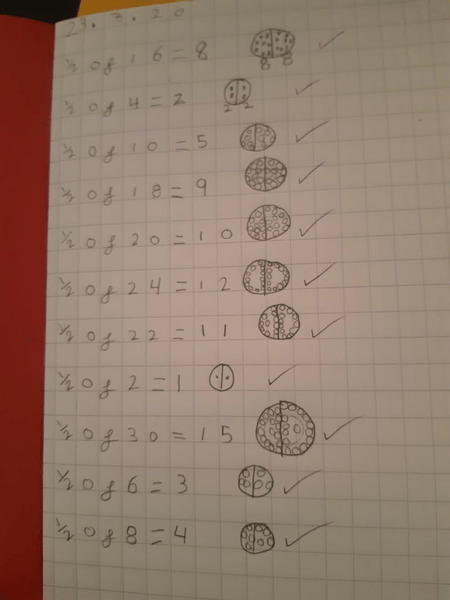 23.3.20
½ of 16 = 8
8 8
½ of 4 = 2
2 2
½ of 10 = 5
½ of 18 = 9
½ of 20 = 10
½ of 24 = 12
½ of 22 = 11
½ of 2 = 1
½ of 30 = 15
½ of 6 = 3
½ of 8 = 4